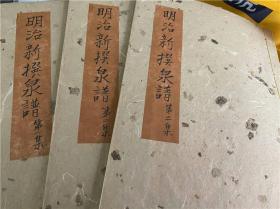 明治新撰泉譜 第一集
明治新撰泉譜 第二集
明治新撰泉譜 第三集